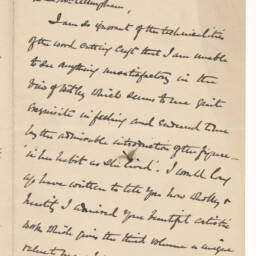 Dear Mr. Allingham,
I am so ignorant of the technicalities
of the wood cutting craft that I am unable
to see anything unsatisfactory in the
View of Witley which seems to me quite
exquisite in feeling and endeared to me
by the admirable introduction of the figure
'in her habit as she lived'. I would long
ago have written to tell you how warmly &
heartily I admired your beautiful artistic
work which gives the third volume a unique
value